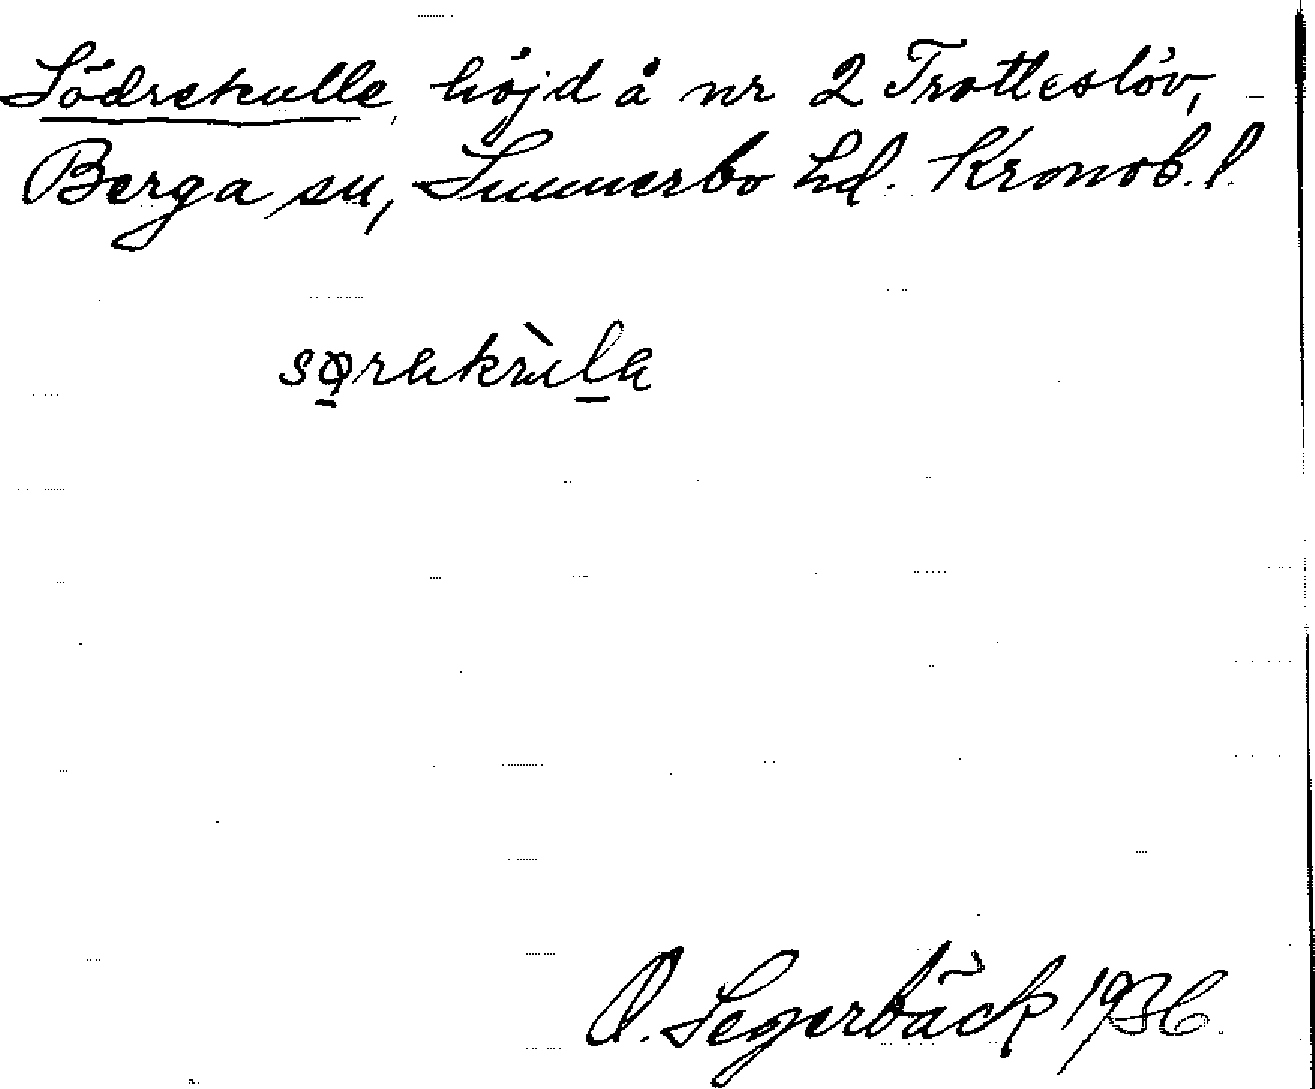 Södrekulle, höjd å nr 2 Trotteslöv,
Berga sn, Sunnerbo hd. Kronob. l.
O. Segerbäck 1936.